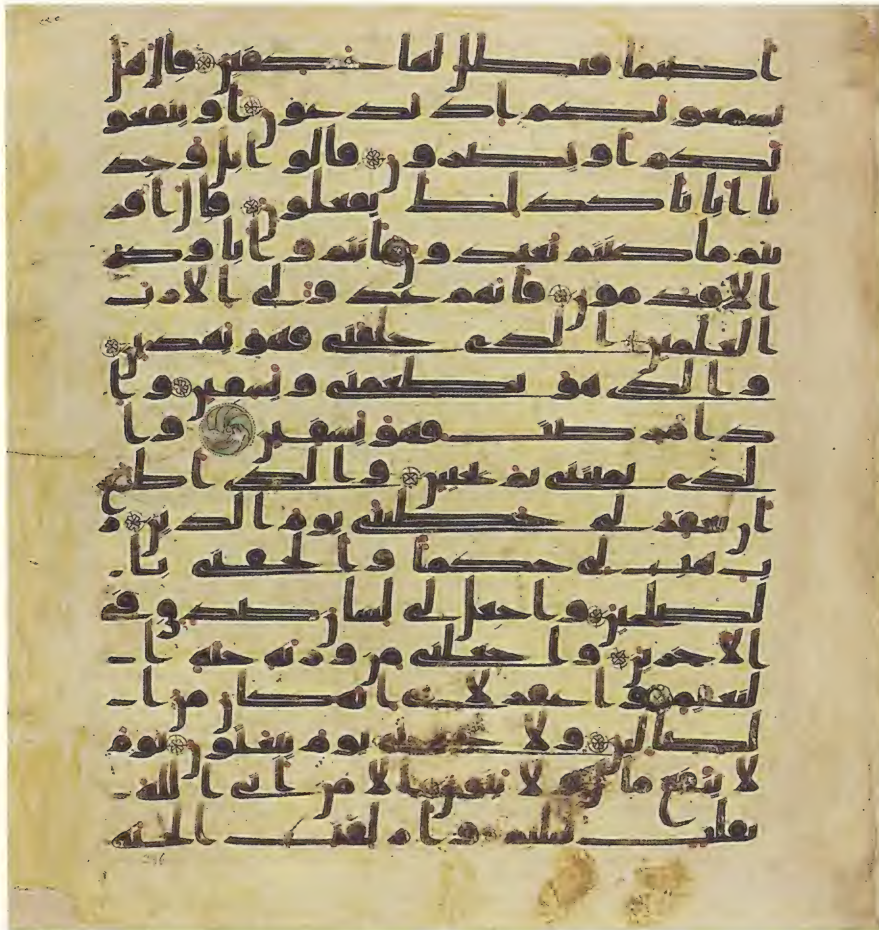 اصنما فنظل لها عكفين قال هل
يسمعونكم اذ تدعون او ينفعو
نكم او يضرون قالوا بل وجد
نا ابانا كذلك يفعلون قال افر
يتم ما كنتم تعبدون انتم و اباوكم
الاقدمون فانهم عدو لي الا رب
العلمين الذي خلقني فهو يهدين
والذي هو يطعمني ويسقين وا
ذا مرضت فهو يشفين وا
لذي يميتني ثم يحيين والذي اطمع
ان يغفر لي خطيتي يوم الدين ر
ب هب لي حكما والحقني با
لصلحين واجعل لي لسان صدق في
الاخرين واجعلني من ورثة جنة ا
لنعيم واغفر لابي انه كان من ا
لضالين ولا تخزني يوم يبعثون يوم
لا ينفع مال ولا بنون الا من اتى الله
بقلب سليم وازلفت الجنة